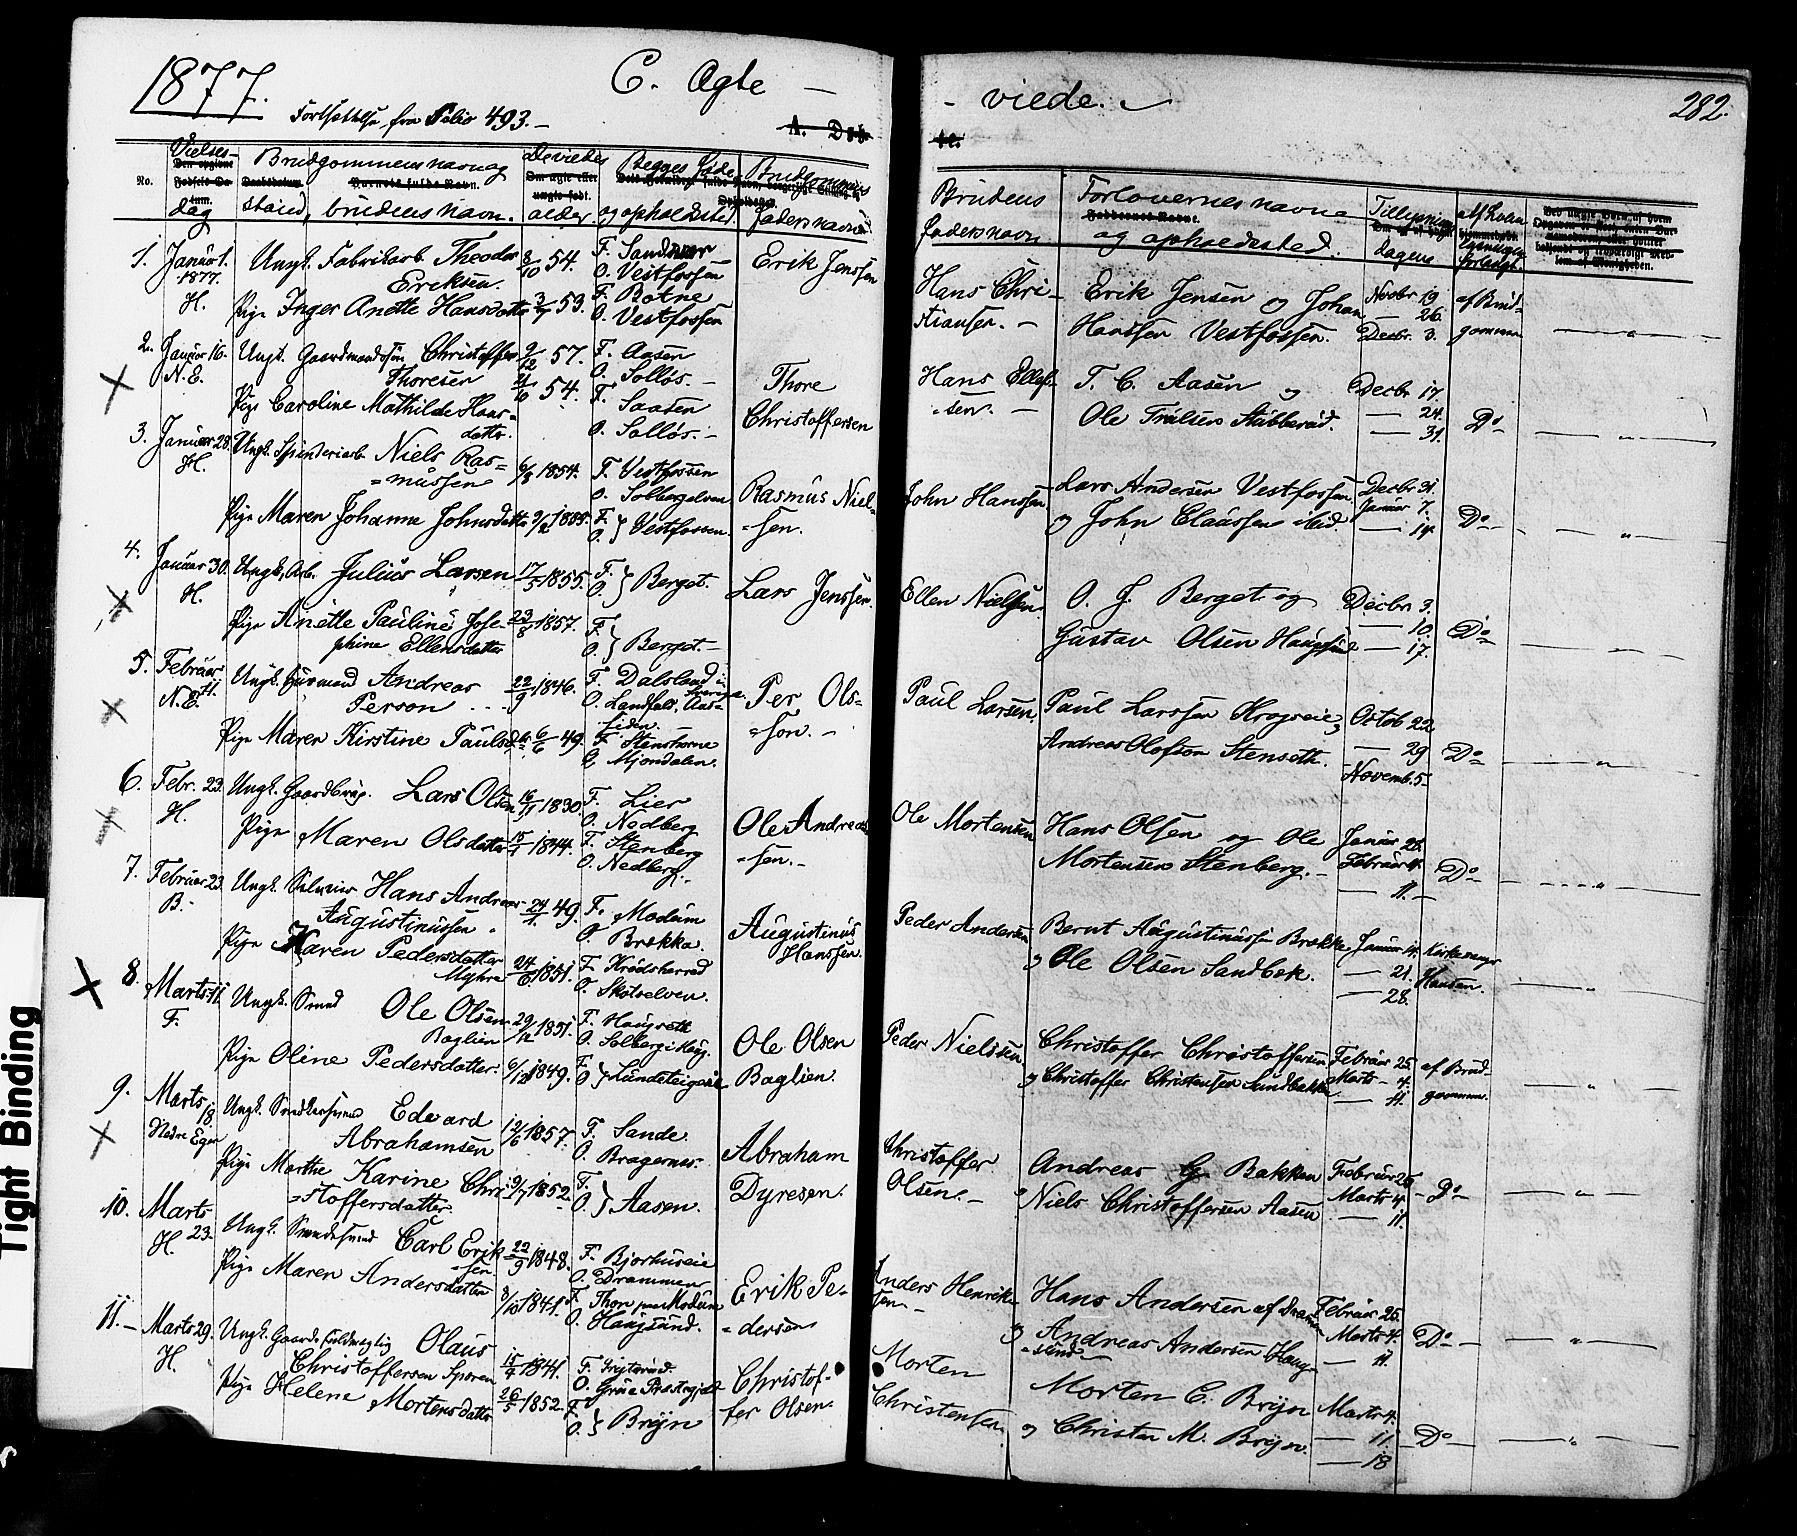 1877.
C. Ægte —
- viede.
282.
Fortsættelse fra Folio 493.
A. Døb-
te.
No.
Vielses-
dag
Brudgommens navn og
stand, brudens navn.
De viedes
alder
Begges Føde
og opholdssted
Brudgommens
faders navn
Brudens
faders navn
Forlovernes navne
og opholdssted.
Tillysnings
dagene
Af hvem
lysningen
forlangt.
1. Januar 1. 1877. H. Ungk. Fabrikarb. Theodor Eriksen. 8/10 54. F. Sandsvær O. Vestfossen Erik Jenssen
Pige Inger Anette Hansdatter 53. F. Botne O. Vestfossen
Hans Christiansen. — Erik Jensen og Johan Hanssen Vestfossen. Novbr 19. — 26. Decbr. 3. af Brudgommen
2. Januar 16. N.E. Ungk. Gaardmandssøn Christoffer Thoresen 9/12 57. F. Aasen O. Solløs. — Thore Christoffersen
Pige Caroline Mathilde Hansdatter. 54. F. Saasen O. Solløs. —
Hans Ellefsen. — T. C. Aasen og Ole Trulsen Stubberud. Decbr 17. — 24. — 31. Do
3. Januar 28. H. Ungk. Spinderiarb Niels Rasmussen 6/8 1854. F. Vestfossen O. Solbergelven Rasmus Nielsen.
Pige Maren Johanne Johnsdatter 9/2 1855. F. O. } Vestfossen.
John Hanssen Lars Andersen Vestfossen og John Claussen ibid. Decbr 31. Januar 7. — 14. Do
4. Januar 30. H. Ungk. Arb. Julius Larsen 17/5 1855. F. O. } Berget. Lars Jenssen.
Pige Anette Pauline Josephine Ellensdatter 23/8 1857. F. O. } Berget. —
Ellen Nielsen. O. J. Berget og Gustav Olsen Haugsund Decbr 3. — 10. — 17. Do
5. Februar 11. N.E. Ungk. Husmand Andreas Person 22/9 1846. F. Dalsland i Sverige O. Landfald, Aassiden. Per Olsson. —
Pige Maren Kirstine Paulsd. 6/6 49. F. Stenshorne O. Mjøndalen.
Paul Larsen. Paul Larssen Krogseie Andreas Olofson Stenseth. Octob 22 — 29 Novemb. 5 Do
6. Febr. 23. H. Ungk. Gaardbrug. Lars Olsen 16/11 1830 F. Lier O. Nedberg Ole Andreassen. —
Pige Maren Olsdatter 1844. F. Stenberg O. Nedberg.
Ole Mortensen Hans Olsen og Ole Mortensen Stenberg. — Januar 28. Februar 4. — 11. — Do
7. Februar 23. B. Ungk. Hans Andreas Augustinussen 24/1 49. F. Modum O. Brekke. Augustinus Hanssen.
Pige Karen Pedersdatter Myhre 24/6 1851. F. Krødsherred O. Skotselven.
Peder Andersen Bernt Augustinussen Brekke og Ole Olsen Sandbæk. Januar 14. — 21. — 28. Kirkesanger Hansen.
8. Marts 11. F. Ungk. Smed Ole Olsen Baglien 29/12 1851. F. Haugseth O. Solberg i Haug. Ole Olsen Baglien.
Pige Oline Pedersdatter. 6/12 1849. F. O. } Lundsteigeie
Peder Nielssen Christoffer Christoffersen og Christoffer Christensen Sundbakken Februar 25. Marts — 4. — 11. af Brudgommen.
9. Marts 18. Nedre Eger Ungk. Snedkersvend Edvard Abrahamsen 12/6 1857. F. Sande. O. Bragernes. Abraham Dyresen.
Pige Marthe Karine Christoffersdatter. 9/7 1852. F. O. } Aasen.
Christoffer Olsen. — Andreas G Bakken Niels Christoffersen Aasen Februar 25 Marts 4. — 11. — Do —
10. Marts 23. H. Ungk. Smedesvend Carl Eriksen. 22/9 1848. F. Bjørhuseie O. Drammen Erik Pedersen
Pige Maren Andersdatter 8/10 1841. F. Thon paa Modum O. Haugsund.
Anders Henriksen — Hans Andersen af Drammen og Andreas Andersen Haugsund Februar 25. Marts 4. — 11. Do
11. — Marts 29. H. Ungk. Gaardsfuldmægtig Olaus Christoffersen Sporen 15/4 1841. F. O. Grue Præstegjeld Christoffer Olsen.
Pige Helene Mortensdatter 26/5 1852. F. O. } Bryn
Morten Christensen. Morten C. Bryn og Christen M. Bryn. Marts 4. — 11. — 18 Do
Tight Binding